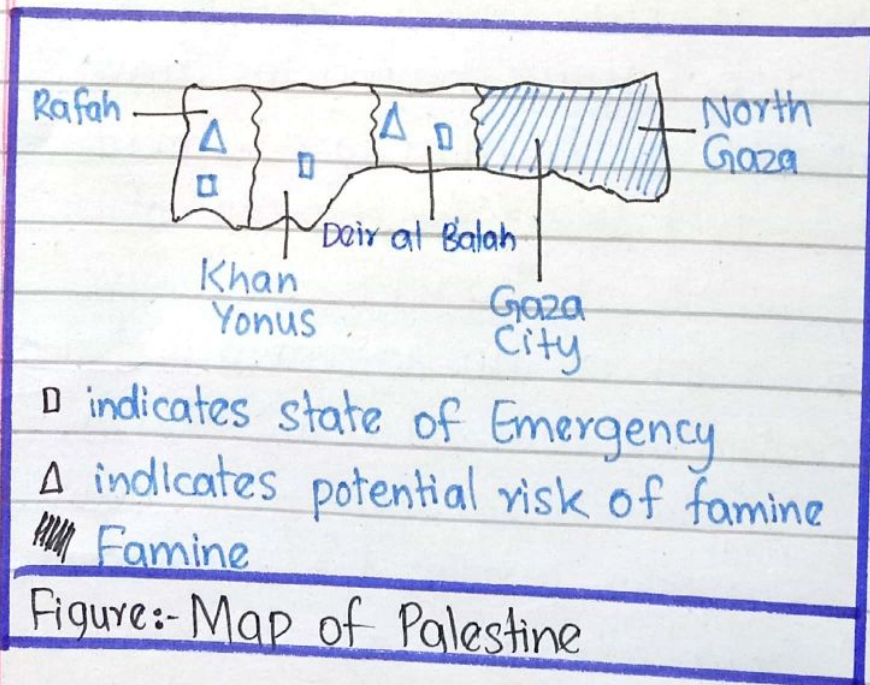 Rafah
North
Gaza
Deir al Balah
Khan
Yonus
Gaza
City
indicates state of Emergency
indicates potential risk of famine
Famine
Figure:- Map of Palestine